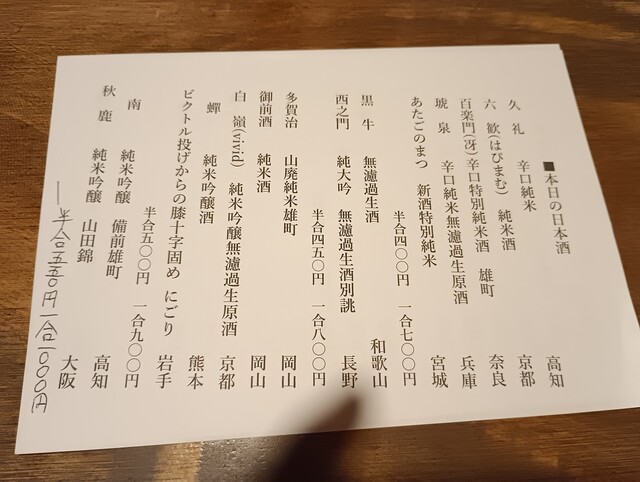 ■本日の日本酒
久礼 辛口純米 高知
六歓(はぴまむ) 純米酒 京都
百楽門(冴)辛口特別純米酒 雄町 奈良
琥泉 辛口純米無濾過生原酒 兵庫
あたごのまつ 新酒特別純米 宮城
半合四〇〇円 一合七〇〇円
黒牛 無濾過生酒 和歌山
西之門 純大吟 無濾過生酒別誂 長野
半合四五〇円 一合八〇〇円
多賀治 山廃純米雄町 岡山
御前酒 純米酒 岡山
白嶺(vivid) 純米吟醸無濾過生原酒 京都
蟬 純米吟醸酒 熊本
ビクトル投げからの膝十字固め にごり 岩手
半合五〇〇円 一合九〇〇円
南 純米吟醸 備前雄町 高知
秋鹿 純米吟醸 山田錦 大阪
半合五五〇円 一合一〇〇〇円